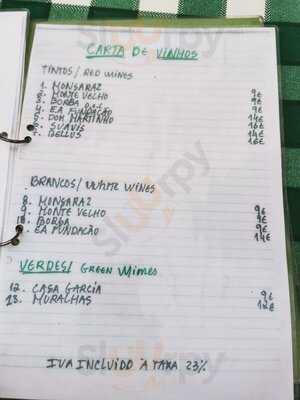 CARTA DE VINHOS
TINTOS/ RED WINES
1. MONSARAZ 9€
2. MONTE VELHO 9€
3. BORBA D.O.C 9€
4. EA FUNDAÇÃO 14€
5. DOM MARTINHO 16€
6. SUAVIS 14€
7. BELLUS 16€
BRANCOS/ WHITE WINES
8. MONSARAZ 9€
9. MONTE VELHO 9€
10. BORBA 9€
11. EA FUNDAÇÃO 14€
VERDES/ GREEN WINES
12. CASA GARCIA 9€
13. MURALHAS 12€
IVA INCLUIDO À TAXA 23%